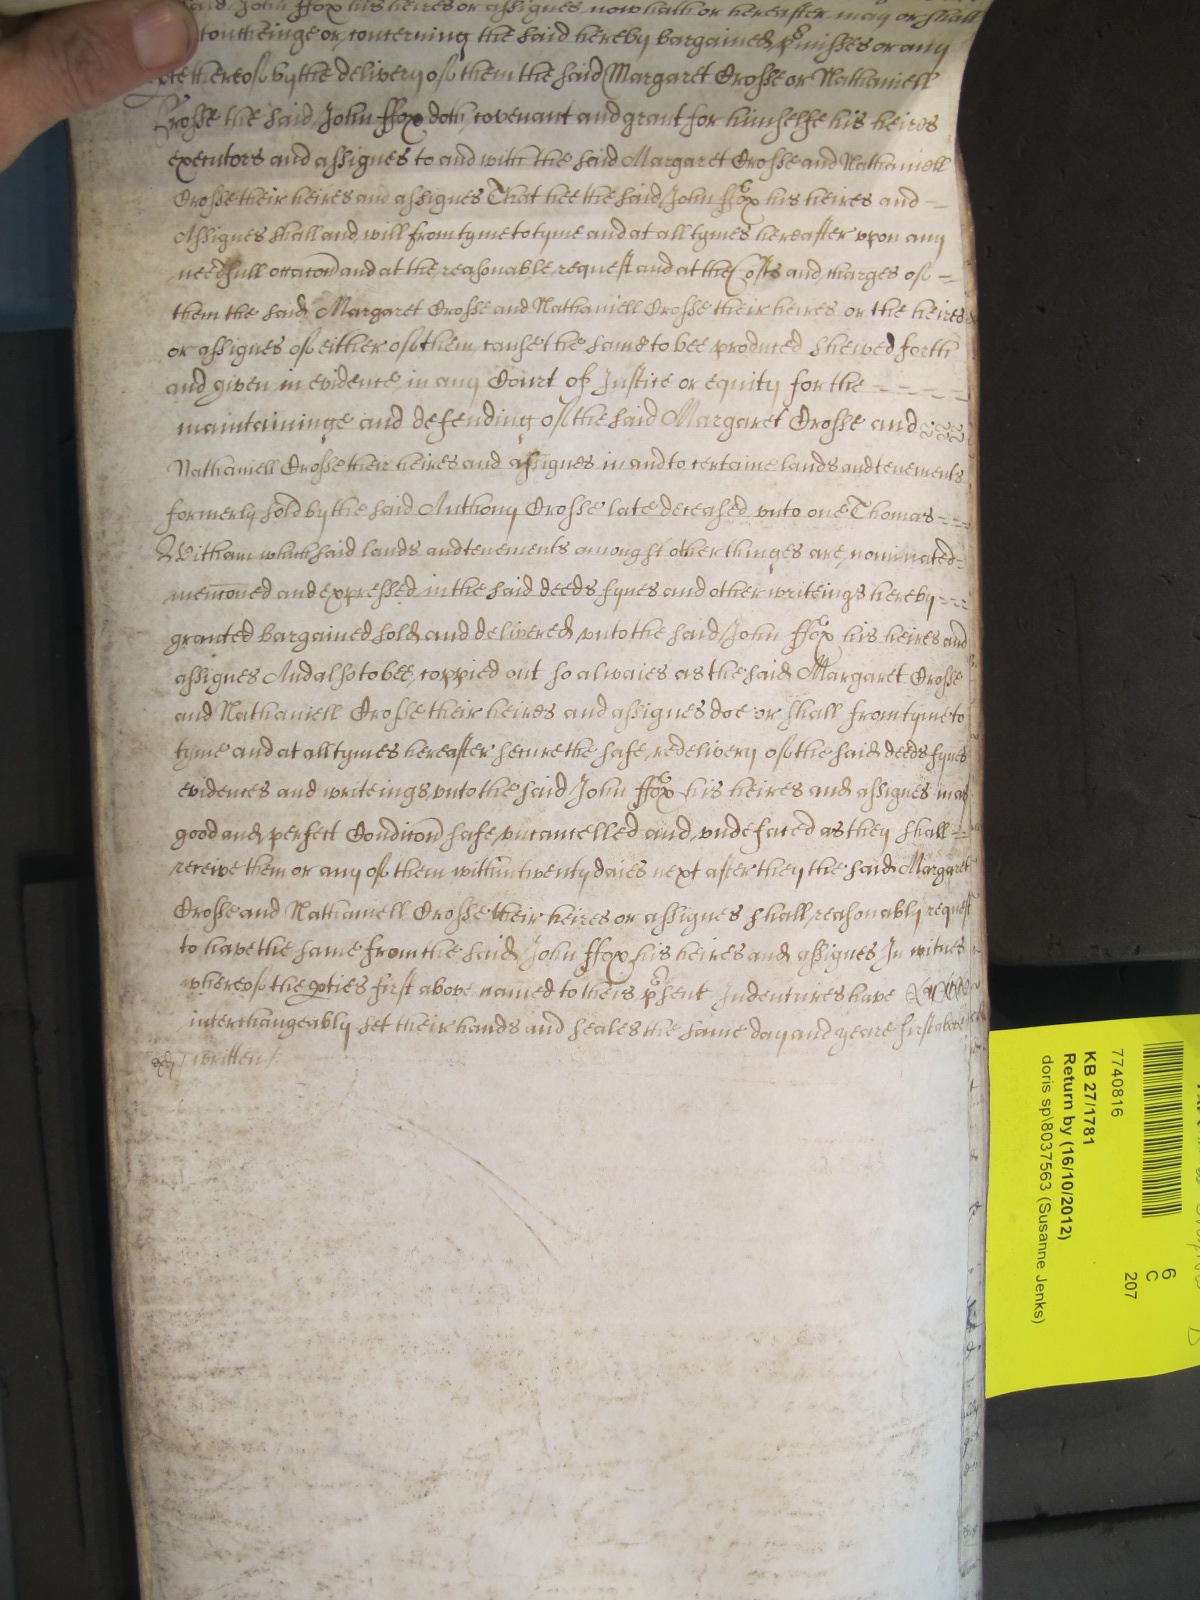 said John ffox his heires or assignes now hath or hereafter may or shall
toucheinge or concerning the said hereby bargained p^rmisses or any
pte thereof by the delivery of them the said Margaret Crosse or Nathaniell
Crosse the said John ffox doth covenant and grant for himselfe his heires
executors and assignes to and with the said Margaret Crosse and Nathaniell
Crosse their heires and assignes That hee the said John ffox his heires and
Assignes shall and will from tyme to tyme and at all tymes hereafter vpon any
needfull occacon and at the reasonable request and at the Costs and charges of
them the said Margaret Crosse and Nathaniell Crosse their heires or the heires
or assignes of either of them cause the same to bee produced shewed forth
and given in evidence in any Court of Justice or equity for the
maintaininge and defending of the said Margaret Crosse and
Nathaniell Crosse their heires and assignes in and to certaine lands and tenements
formerly sold by the said Anthony Crosse late deceased vnto one Thomas
Witham which said lands and tenements amongst other thinges are nominated
mencioned and expressed in the said deeds fynes and other writeings hereby
granted bargained sold and delivered vnto the said John ffox his heires and
assignes And also to bee coppied out so alwaies as the said Margaret Crosse
and Nathaniell Crosse their heires and assignes doe or shall from tyme to
tyme and at all tymes hereafter secure the safe redelivery of the said deeds fynes
evidences and writeings vnto the said John ffox his heires and assignes in as
good and perfect Condicon safe vncancelled and vndefaced as they shall
receive them or any of them within twenty daies next after they the said Margaret
Crosse and Nathaniell Crosse their heires or assignes shall reasonably request
to have the same from the said John ffox his heires and assignes In witnes
whereof the pties first above named to theis p^rsent Indentures have
interchangeably set their hands and seales the same day and yeare first above
written
7740816
KB 27/1781
Return by (16/10/2012)
doris sp\8037563 (Susanne Jenks)
6
C
207